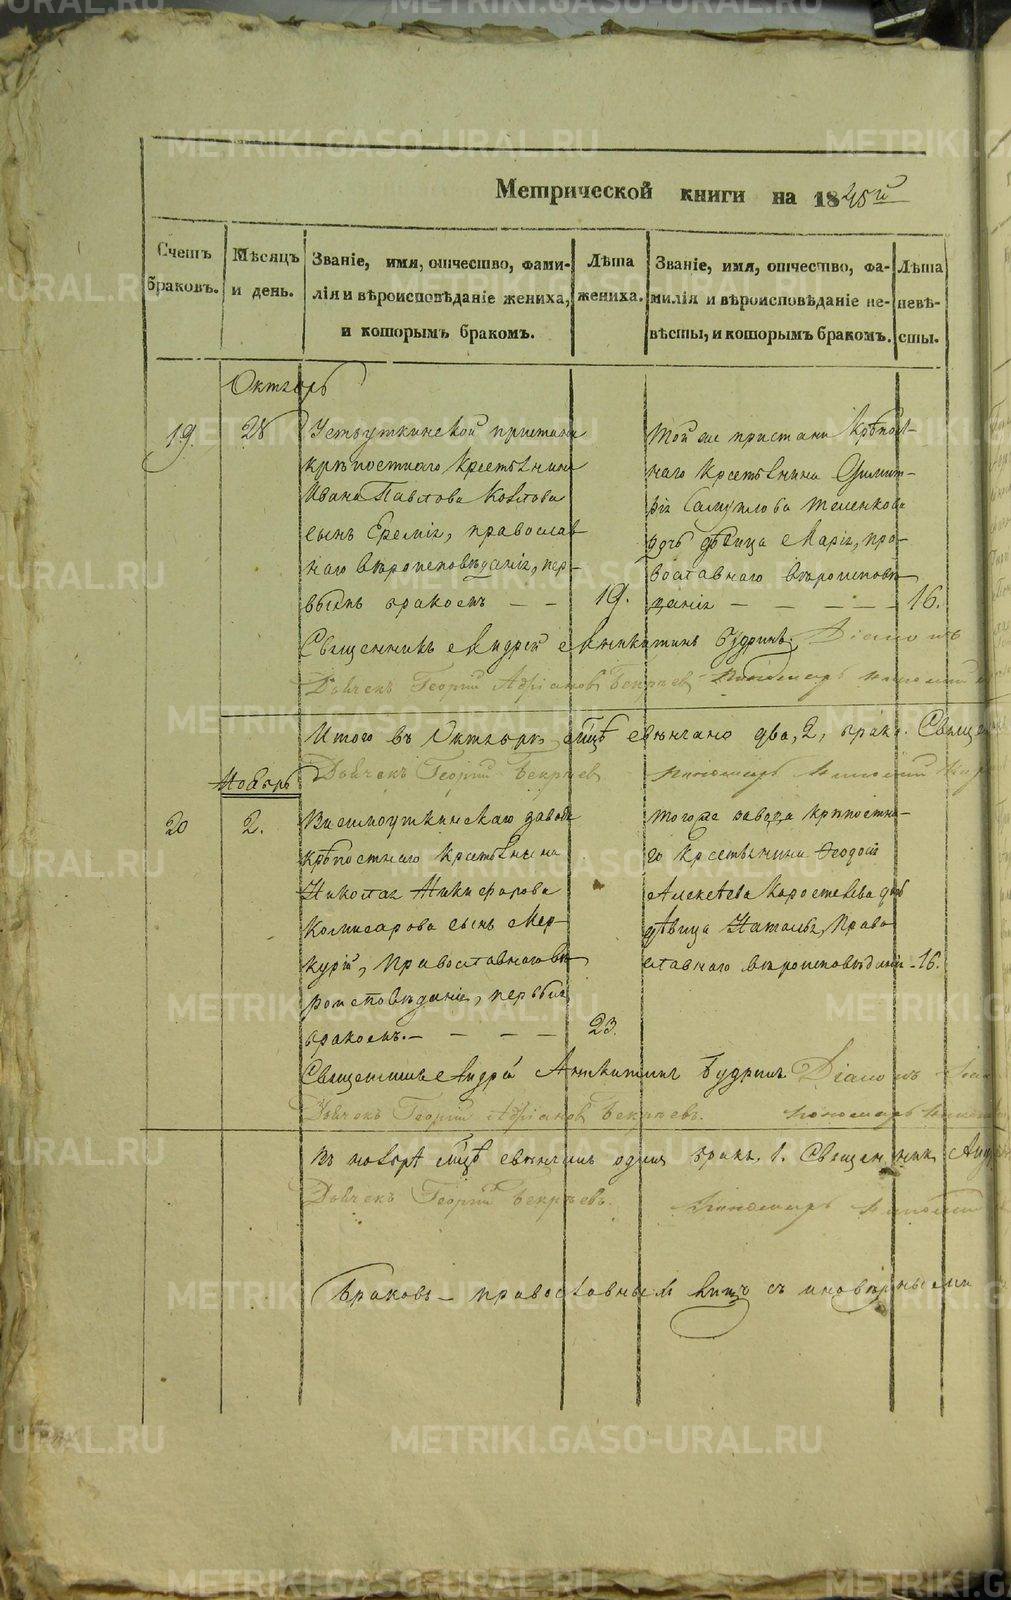 METRIKI.GASO-URAL.RU
Метрической книги на 1845й
Счетъ браковъ.
Мѣсяцъ и день.
Званіе, имя, отчество, фамилія и вѣроисповѣданіе жениха, и которымъ бракомъ.
Лѣта жениха.
Званіе, имя, отчество, фамилія и вѣроисповѣданіе невѣсты, и которымъ бракомъ.
Лѣта невѣсты.
Октябрь
19.
28
Устьуткинской пристани
крѣпостнаго крестьянина
Ивана Павлова Козлова
сынъ Еремій, православ
наго вѣроисповѣданія, пер-
вымъ бракомъ — —
19.
Той же пристани крѣпост-
наго крестьянина Димит-
рія Самуилова Теленкова
дочь дѣвица Марія, пра-
вославнаго вѣроисповѣ
данія — — — —
16.
Священникъ Андрей Аникитинъ Будринъ. Діаконъ
Дьячекъ Георгій Адріановъ Бекряев пономарь
Итого въ Октябрѣ м͠цѣ вѣнчано два, 2, брака. Священ
Дьячекъ Георгій Бекряев пономарь
Ноябрь
20
2.
Висимоуткинскаго завода
крѣпостнаго крестьянина
Николая Никифорова
Комисарова сынъ Мер-
курій, православнаго вѣ
роисповѣданія, первымъ
бракомъ. — — — —
23.
тогоже завода крѣпостна-
го крестьянина Феодосія
Алексѣева Коростелева дочь
дѣвица Наталья, право
славнаго вѣроисповѣданія
16.
Священникъ Андрей Аникитинъ Будринъ Діаконъ
Дьячекъ Георгій Адріановъ Бекряевъ. пономарь
Въ ноябрѣ м͠цѣ вѣнчанъ одинъ бракъ. 1. Священникъ Андр
Дьячекъ Георгій Бекряевъ. пономарь
Браковъ православныхъ лицъ съ иновѣрными